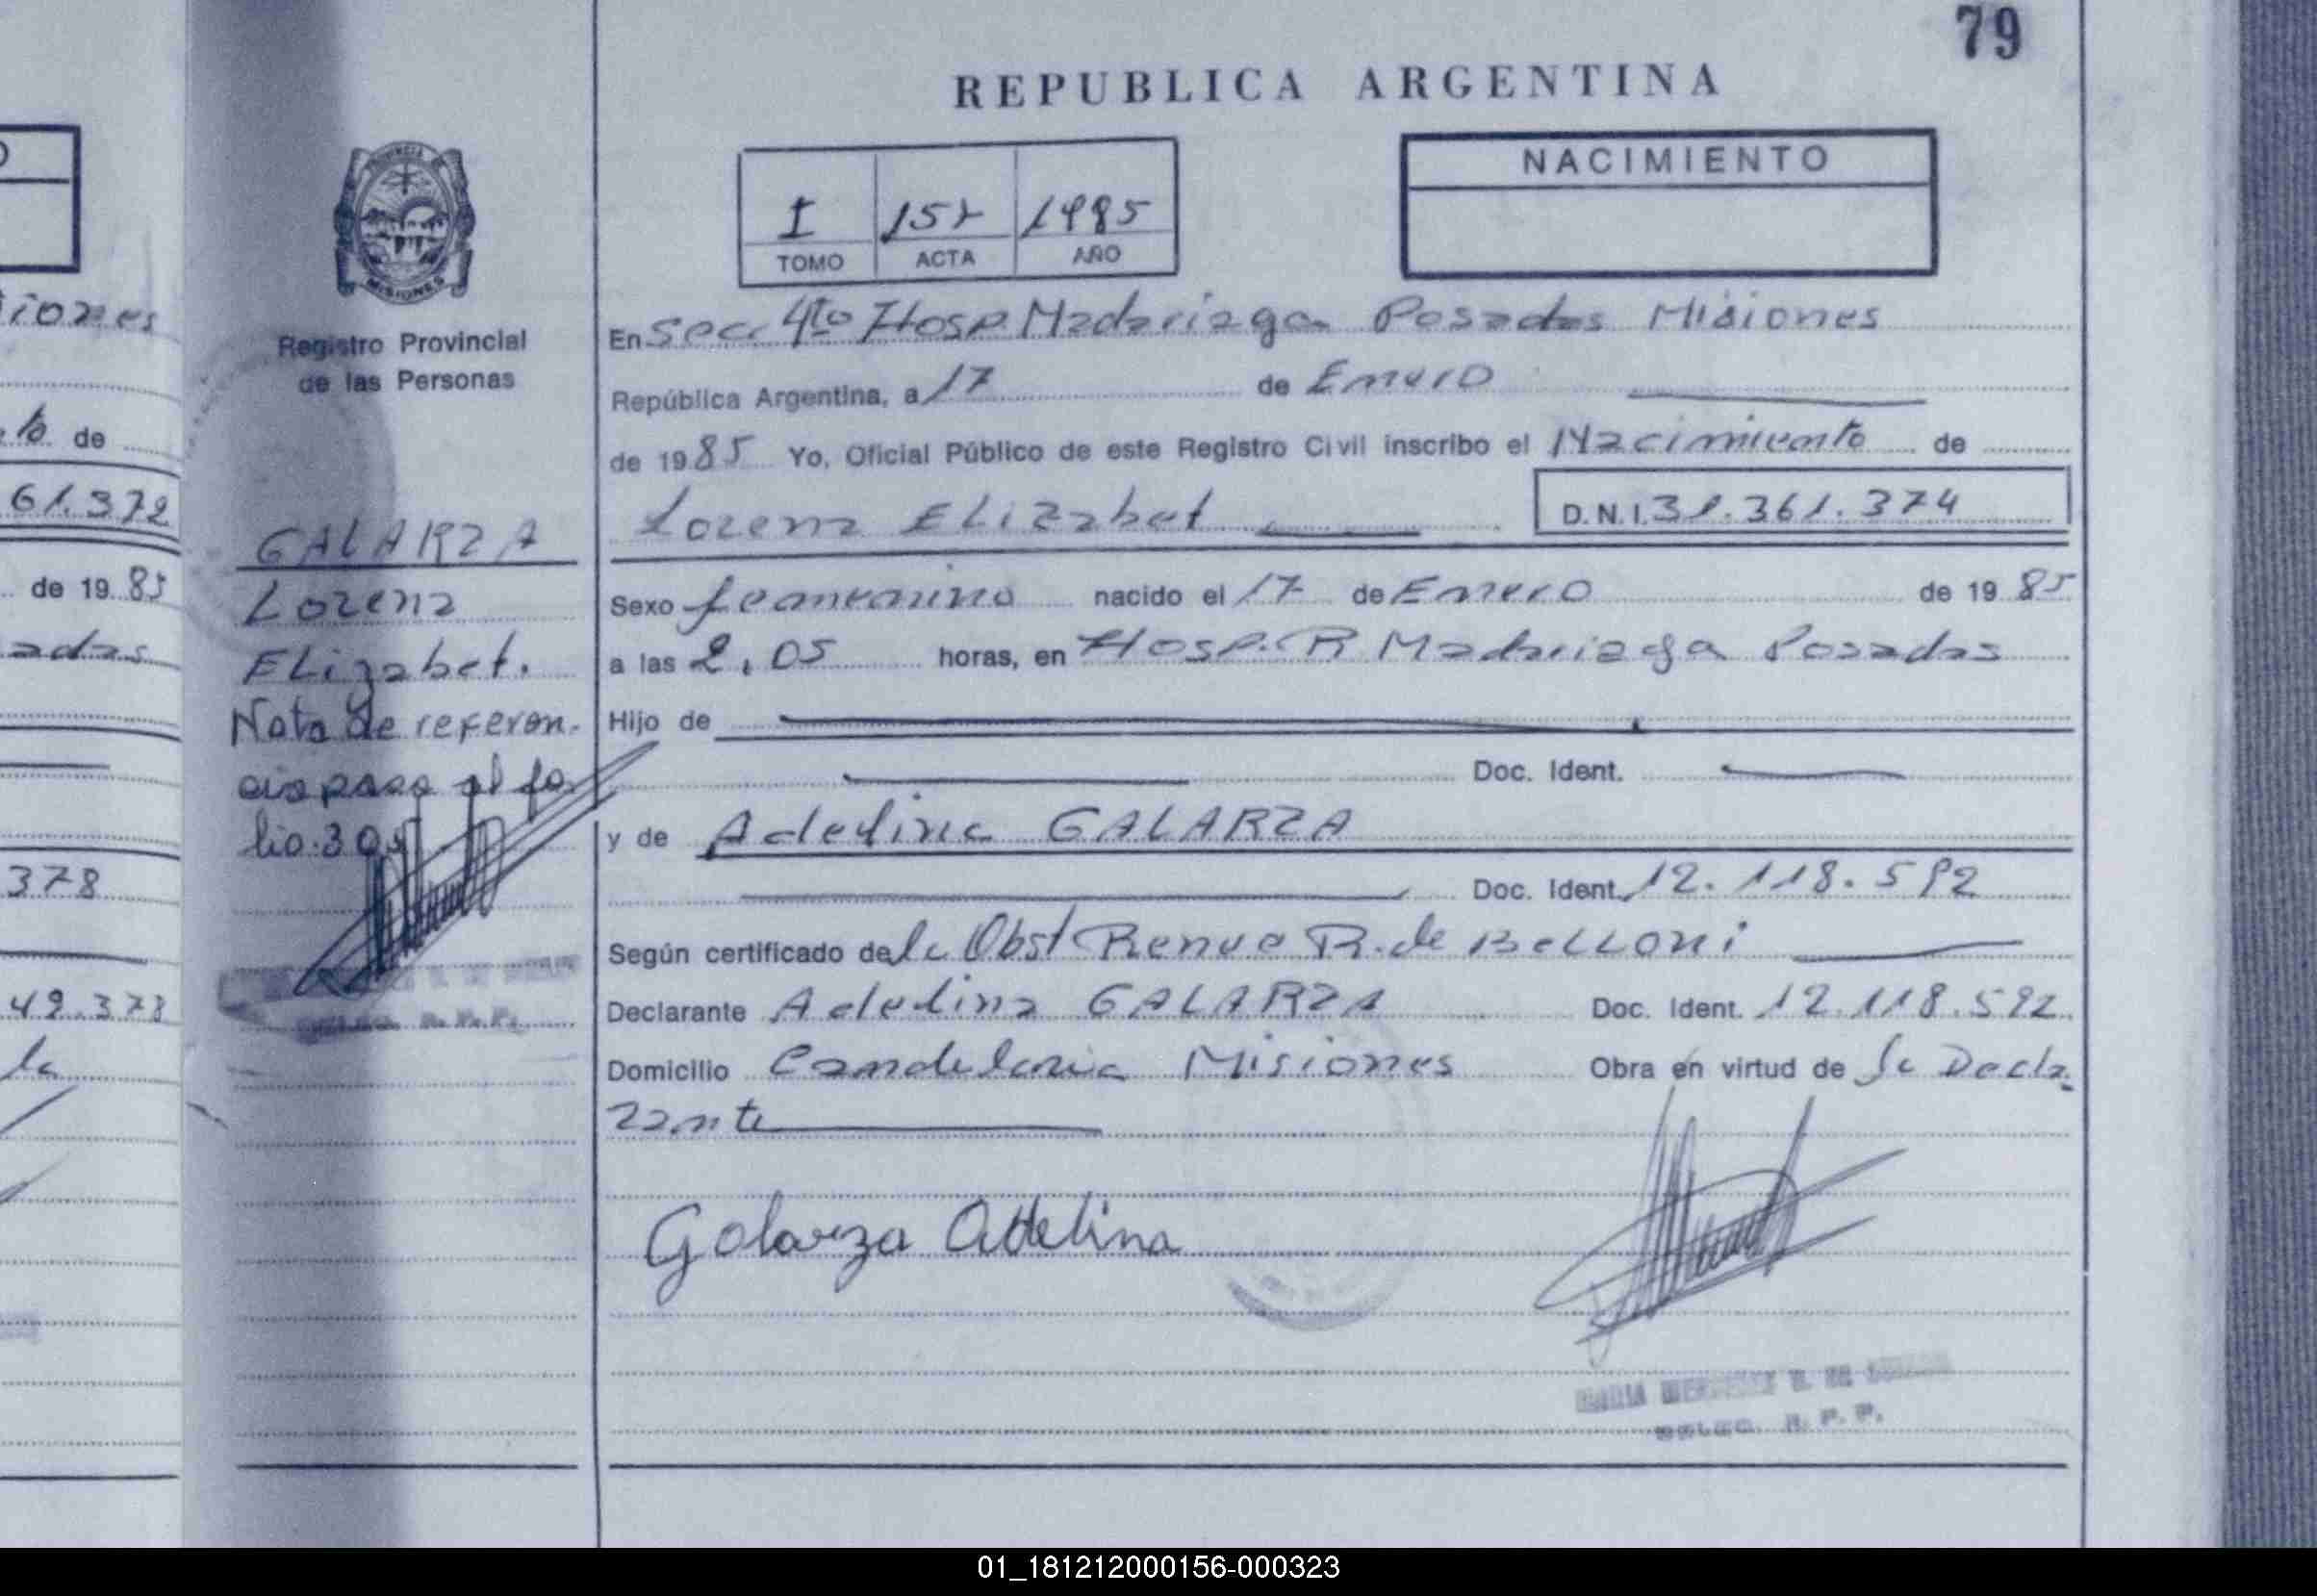 79
REPUBLICA ARGENTINA
I 157 1985
TOMO ACTA AÑO
NACIMIENTO
PROVINCIA DE
MISIONES
Registro Provincial
de las Personas
GALARZA
Lorena
Elizabet.
Nota de referen-
cia pasa al fo
lio 30
En Secc. 4to Hosp. Madariaga Posadas Misiones
República Argentina, a 17 de Enero
de 1985 Yo, Oficial Público de este Registro Civil inscribo el Nacimiento de
Lorena ELizabet D.N.I. 31.361.374
Sexo femenino nacido el 17 de Enero de 1985
a las 2,05 horas, en Hosp. R Madariaga Posadas
Hijo de
Doc. Ident.
y de Adelina GALARZA
Doc. Ident. 12.118.592
Según certificado de la Obst R. de BeLLoni
Declarante Adelina GALARZA Doc. Ident. 12.118.592
Domicilio Candelaria Misiones Obra en virtud de la Decla
rante
Galarza Adelina
MARIA
DELEG. R. P. P.
iones
to de
61.372
de 19 85
adas
378
49.378
la
01_181212000156-000323